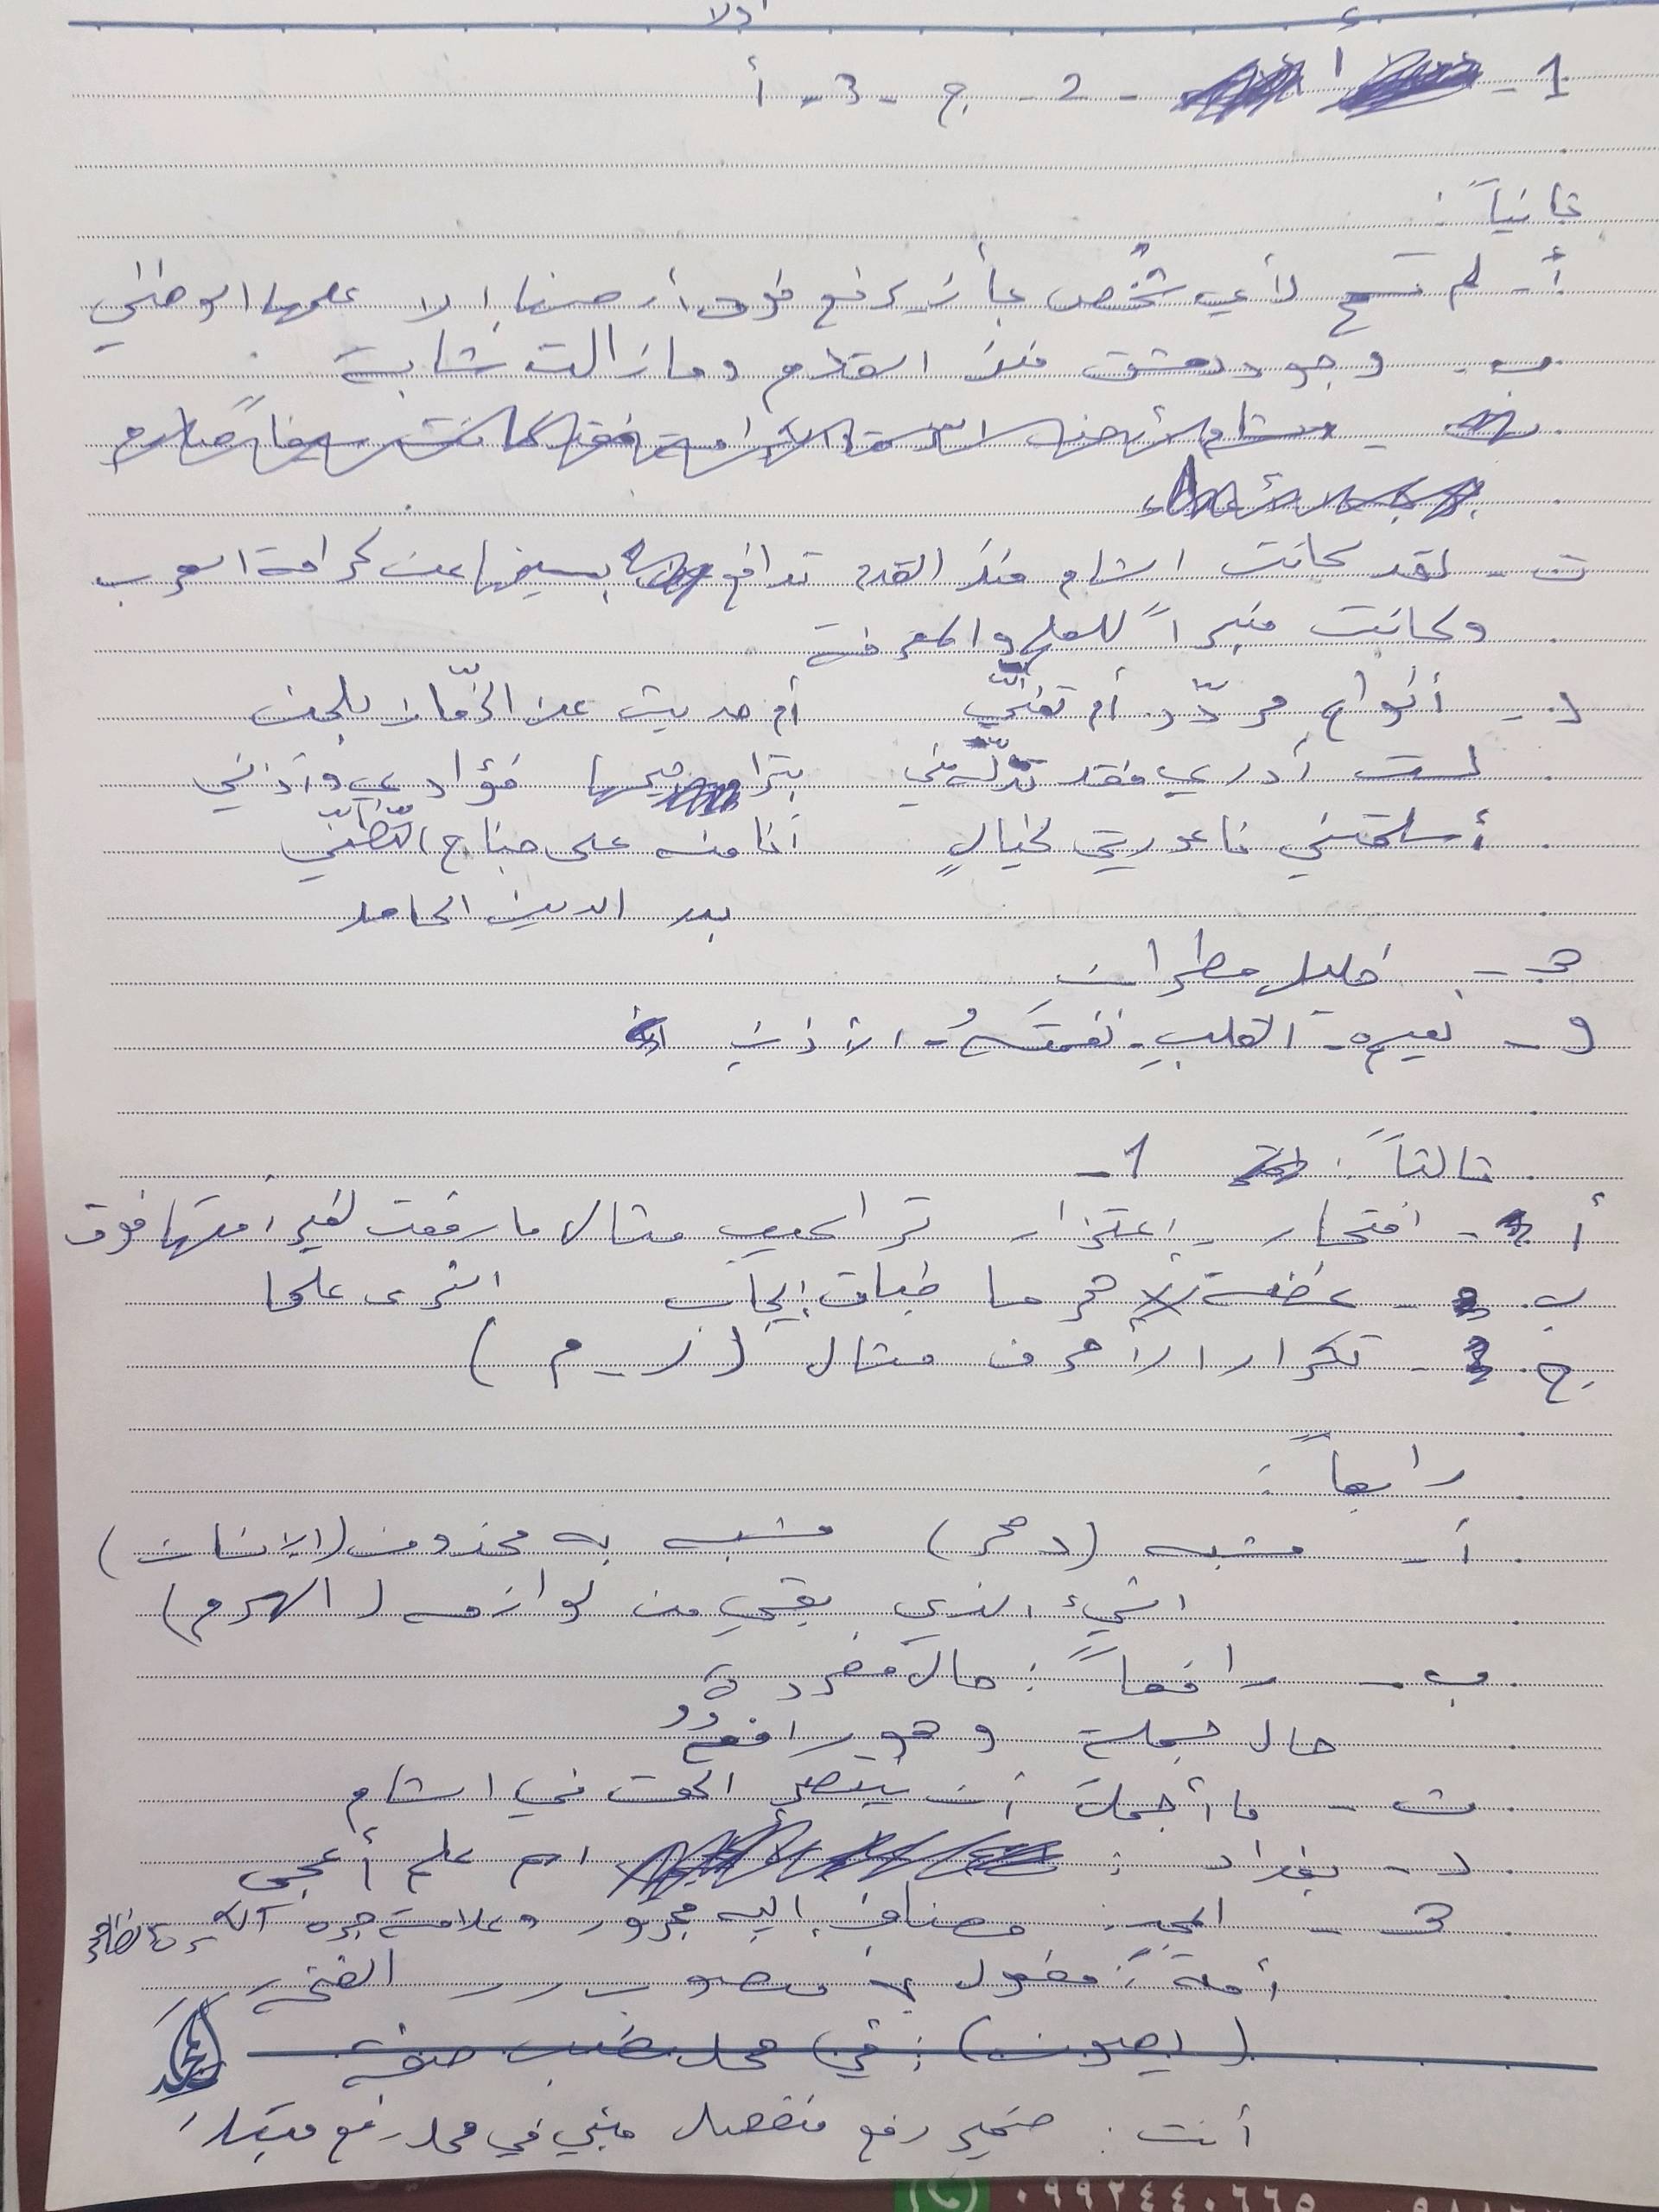 أولا
1 - أ - 2 - ج - 3 - أ
ثانياً :
أ - لم تسمح لأي شخص بأن يرفع فوق أرضنا إلا علمها الوطني
ب - وجود دمشق منذ القدم وما زالت شابة
ت - لقد كانت الشام منذ القدم تدافع بسيفها عن كرامة العرب
وكانت منبراً للعلم والمعرفة
د - أنواح مردّد أم تغنّي أم حديث عن الزمّان بلحن
لست أدري فقد تدلّهني بتراجيعها فؤادي وأذني
أسلمتني ناعورتي لخيالٍ أنا منه على جناح التظنّي
بدر الدين الحامد
3 - خليل مطران
و - نعيره - القلب - نغمتهُ - الأذن
ثالثاً : 1 -
أ - افتخار - إعتزاز تراكيب مثال ما رفعت لغير أمتها فوق
ب - هرما طباق إيجاب الثرى علما
ج - تكرار الأحرف مثال ( ر - م )
رابعاً :
أ - مشبه (دهر) مشبه به محذوف (الإنسان)
الشيء الذي بقي من لوازمه (الهرم)
ب - رافعاً : حال مفردة
حال جملة وهو رافع
ت - ما أجمل أن ينتصر الحق في الشام
د - بغداد : اسم علم أعجمي
3 - المجد : مضاف إليه مجرور وعلامة جره الكسرة الظاهرة
أمة : مفعول به منصوب رر الفتحة
(يصون) : في محل نصب صفة
أنت : ضمير رفع منفصل مبني في محل رفع مبتدأ
٠٩٩٢٤٤٠٦٦٥